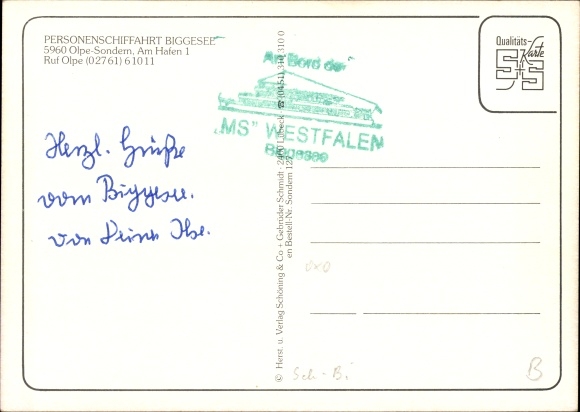 PERSONENSCHIFFAHRT BIGGESEE
5960 Olpe-Sondern, Am Hafen 1
Ruf Olpe (02761) 61011
An Bord der
„MS" WESTFALEN
Biggesee
Qualitäts-
Karte
Herzl. Grüße
vom Biggesee.
von Deiner Ilse.
© Herst. u. Verlag Schöning & Co + Gebrüder Schmidt · 2400 Lübeck ☎ (0451) 310 310 0
en Bestell-Nr. Sondern 127
Sch.-Bi.
B